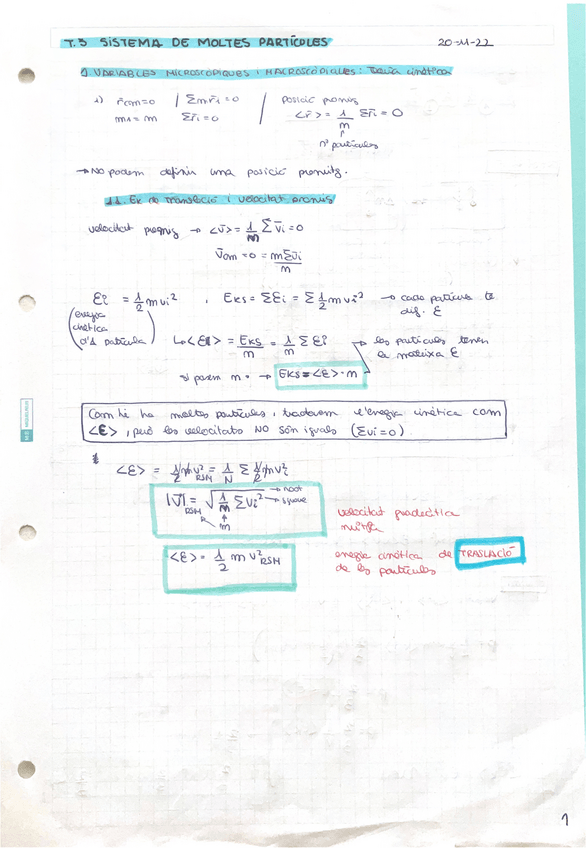 T.3 SISTEMA DE MOLTES PARTÍCULES 20-11-22
1) VARIABLES MICROSCÒPIQUES I MACROSCÒPIQUES: Teoria cinètica
1) r̄cm=0 | Σmr̄i=0 / Posició promig
m1=m Σr̄i=0 <r̄>= 1/m Σr̄i=0
nº partícules
→ No podem definir una posició promig.
1.1. Ek de translació i velocitat promig
velocitat promig → <v̄>= 1/m Σv̄i=0
v̄cm=0= mΣv̄i/m
Ei = 1/2 mvi² , Eks= ΣEi = Σ 1/2 mvi² → cada partícula té dif. E
(energia cinètica d'1 partícula)
↳ <E> = Eks/m = 1/m ΣEi → les partícules tenen la mateixa E
si posem m → Eks=<E>·m
Com hi ha moltes partícules, tractarem l'energia cinètica com
<E>, però les velocitats NO són iguals (Σvi=0).
<E> = 1/2 mv²RSM = 1/N Σ 1/2 mvi²
|v̄|RSM = √(1/m Σvi²) → root → square
m
velocitat quadràtica mitja
<E> = 1/2 m v²RSM
energia cinètica de TRASLACIÓ
de les partícules
1